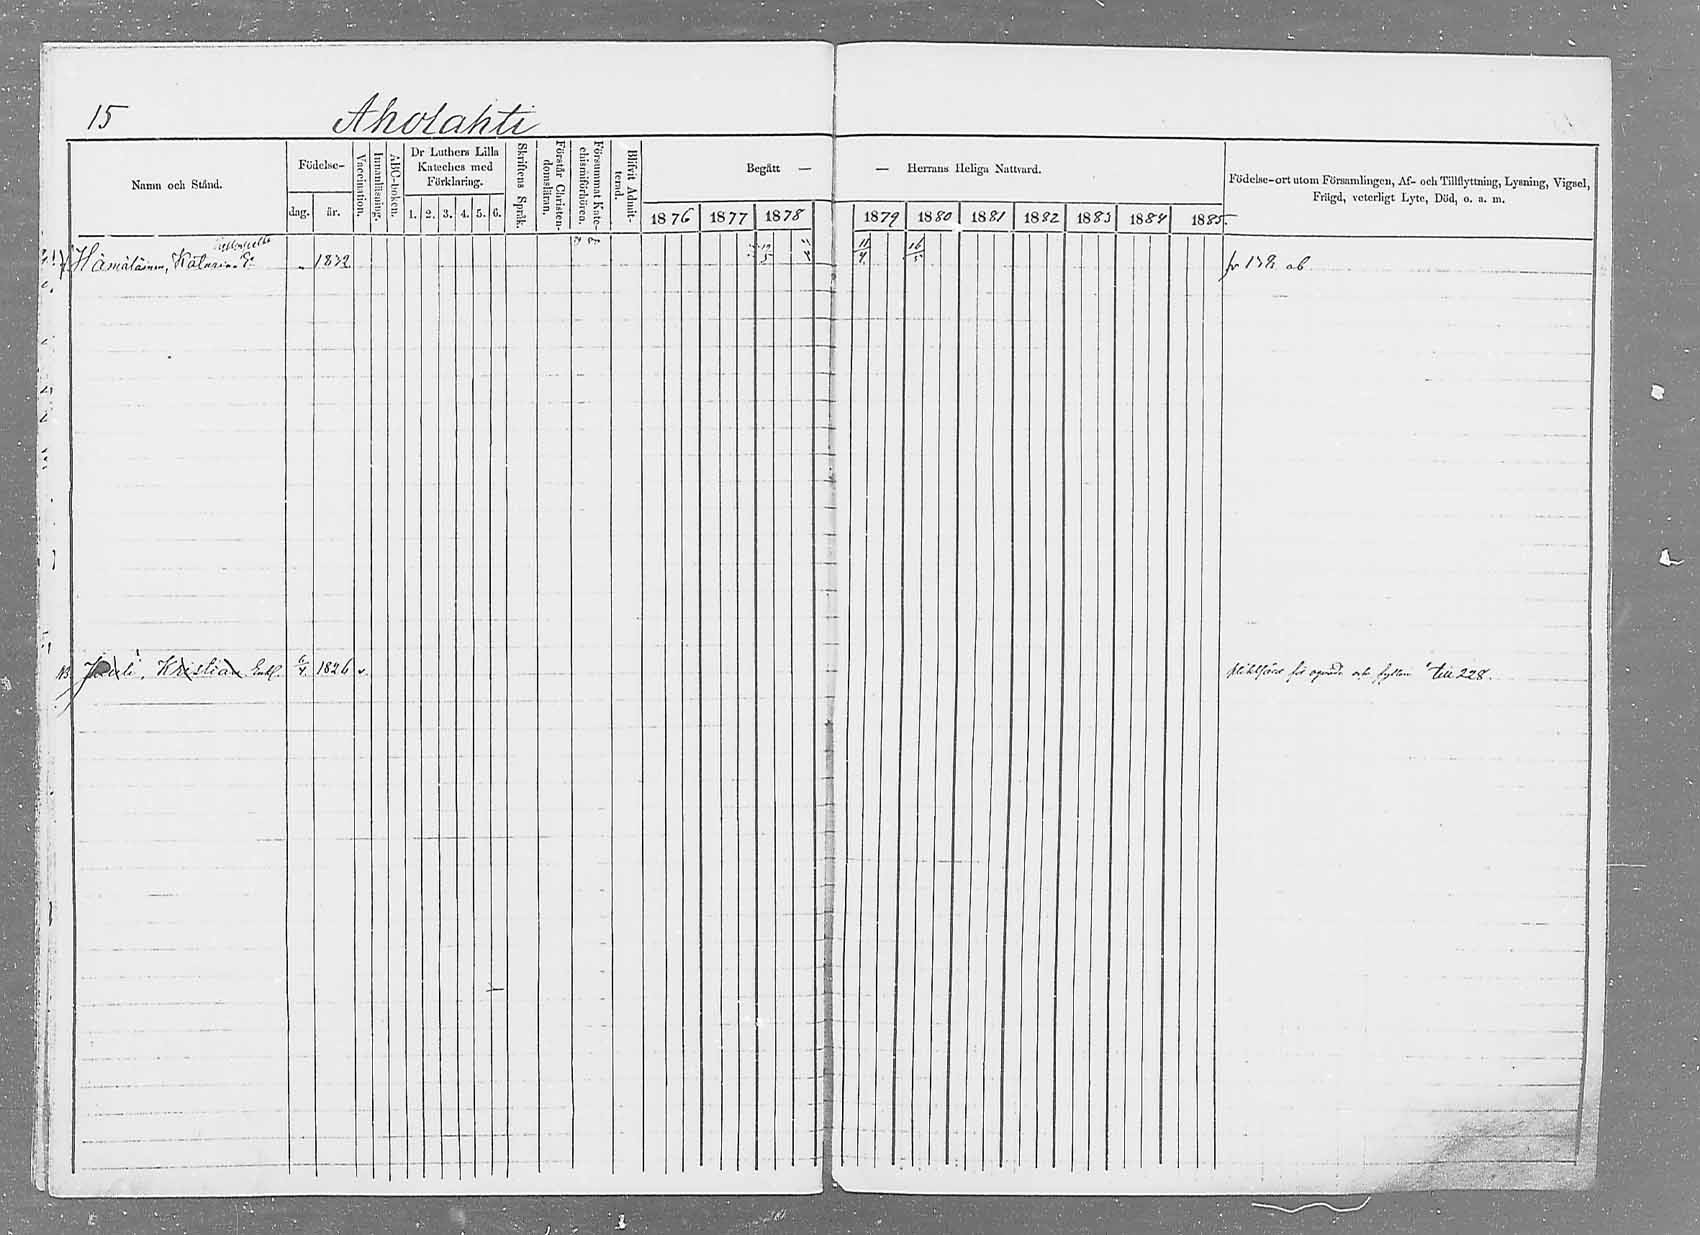 15 Aholahti
Namn och Stånd.
Födelse-
dag.
år.
Vaccination.
Innanläsning.
ABC-boken.
Dr Luthers Lilla
Kateches med
Förklaring.
1. 2. 3. 4. 5. 6.
Skriftens Språk.
Förstår Christen-
domsläran.
Försummat Kate-
chismiförhören.
Blifvit Admit-
terad.
Begått — — Herrans Heliga Nattvard.
1876 1877 1878 1879 1880 1881 1882 1883 1884 1885.
Födelse-ort utom Församlingen, Af- och Tillflyttning, Lysning, Vigsel,
Frägd, veterligt Lyte, Död, o. a. m.
Hämäläinen, Katarina 1832 fr 138. ab
Kristian Enkl. 1826 v. för och till 228.